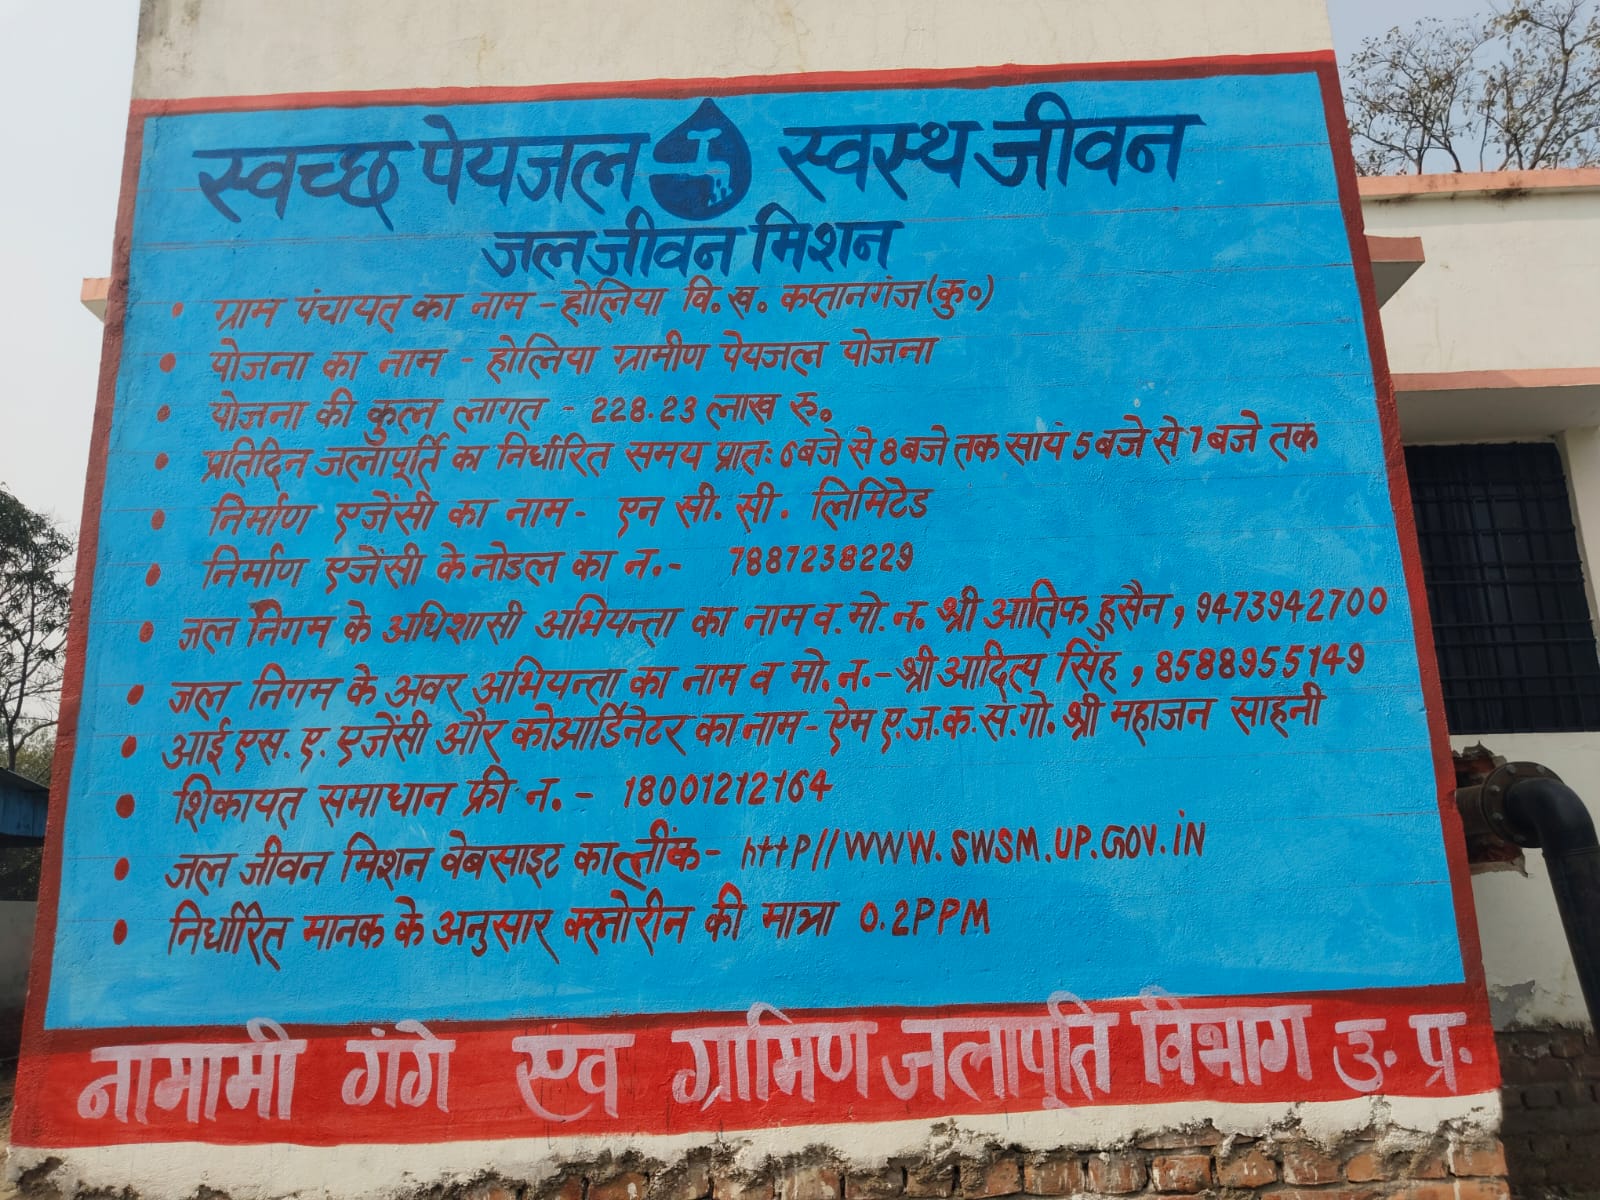 स्वच्छ पेयजल स्वस्थ जीवन
जल जीवन मिशन
• ग्राम पंचायत का नाम - होलिया वि. ख. कप्तानगंज (कु॰)
• योजना का नाम - होलिया ग्रामीण पेयजल योजना
• योजना की कुल लागत - 228.23 लाख रु॰
• प्रतिदिन जलापूर्ति का निर्धारित समय प्रातः 6 बजे से 8 बजे तक सायं 5 बजे से 7 बजे तक
• निर्माण एजेंसी का नाम - एन सी. सी. लिमिटेड
• निर्माण एजेंसी के नोडल का न. - 7887238229
• जल निगम के अधिशासी अभियन्ता का नाम व. मो. न. श्री आतिफ हुसैन, 9473942700
• जल निगम के अवर अभियन्ता का नाम व मो. न. - श्री आदित्य सिंह, 8588955149
• आई एस. ए. एजेंसी और कोआर्डिनेटर का नाम - ऐम ए. ज. क. स. गो. श्री महाजन साहनी
• शिकायत समाधान फ्री न. - 18001212164
• जल जीवन मिशन वेबसाइट का लींक - http//WWW.SWSM.UP.GOV.iN
• निर्धारित मानक के अनुसार क्लोरीन की मात्रा 0.2PPM
नामामी गंगे एंव ग्रामिण जलापूर्ति विभाग उ. प्र.